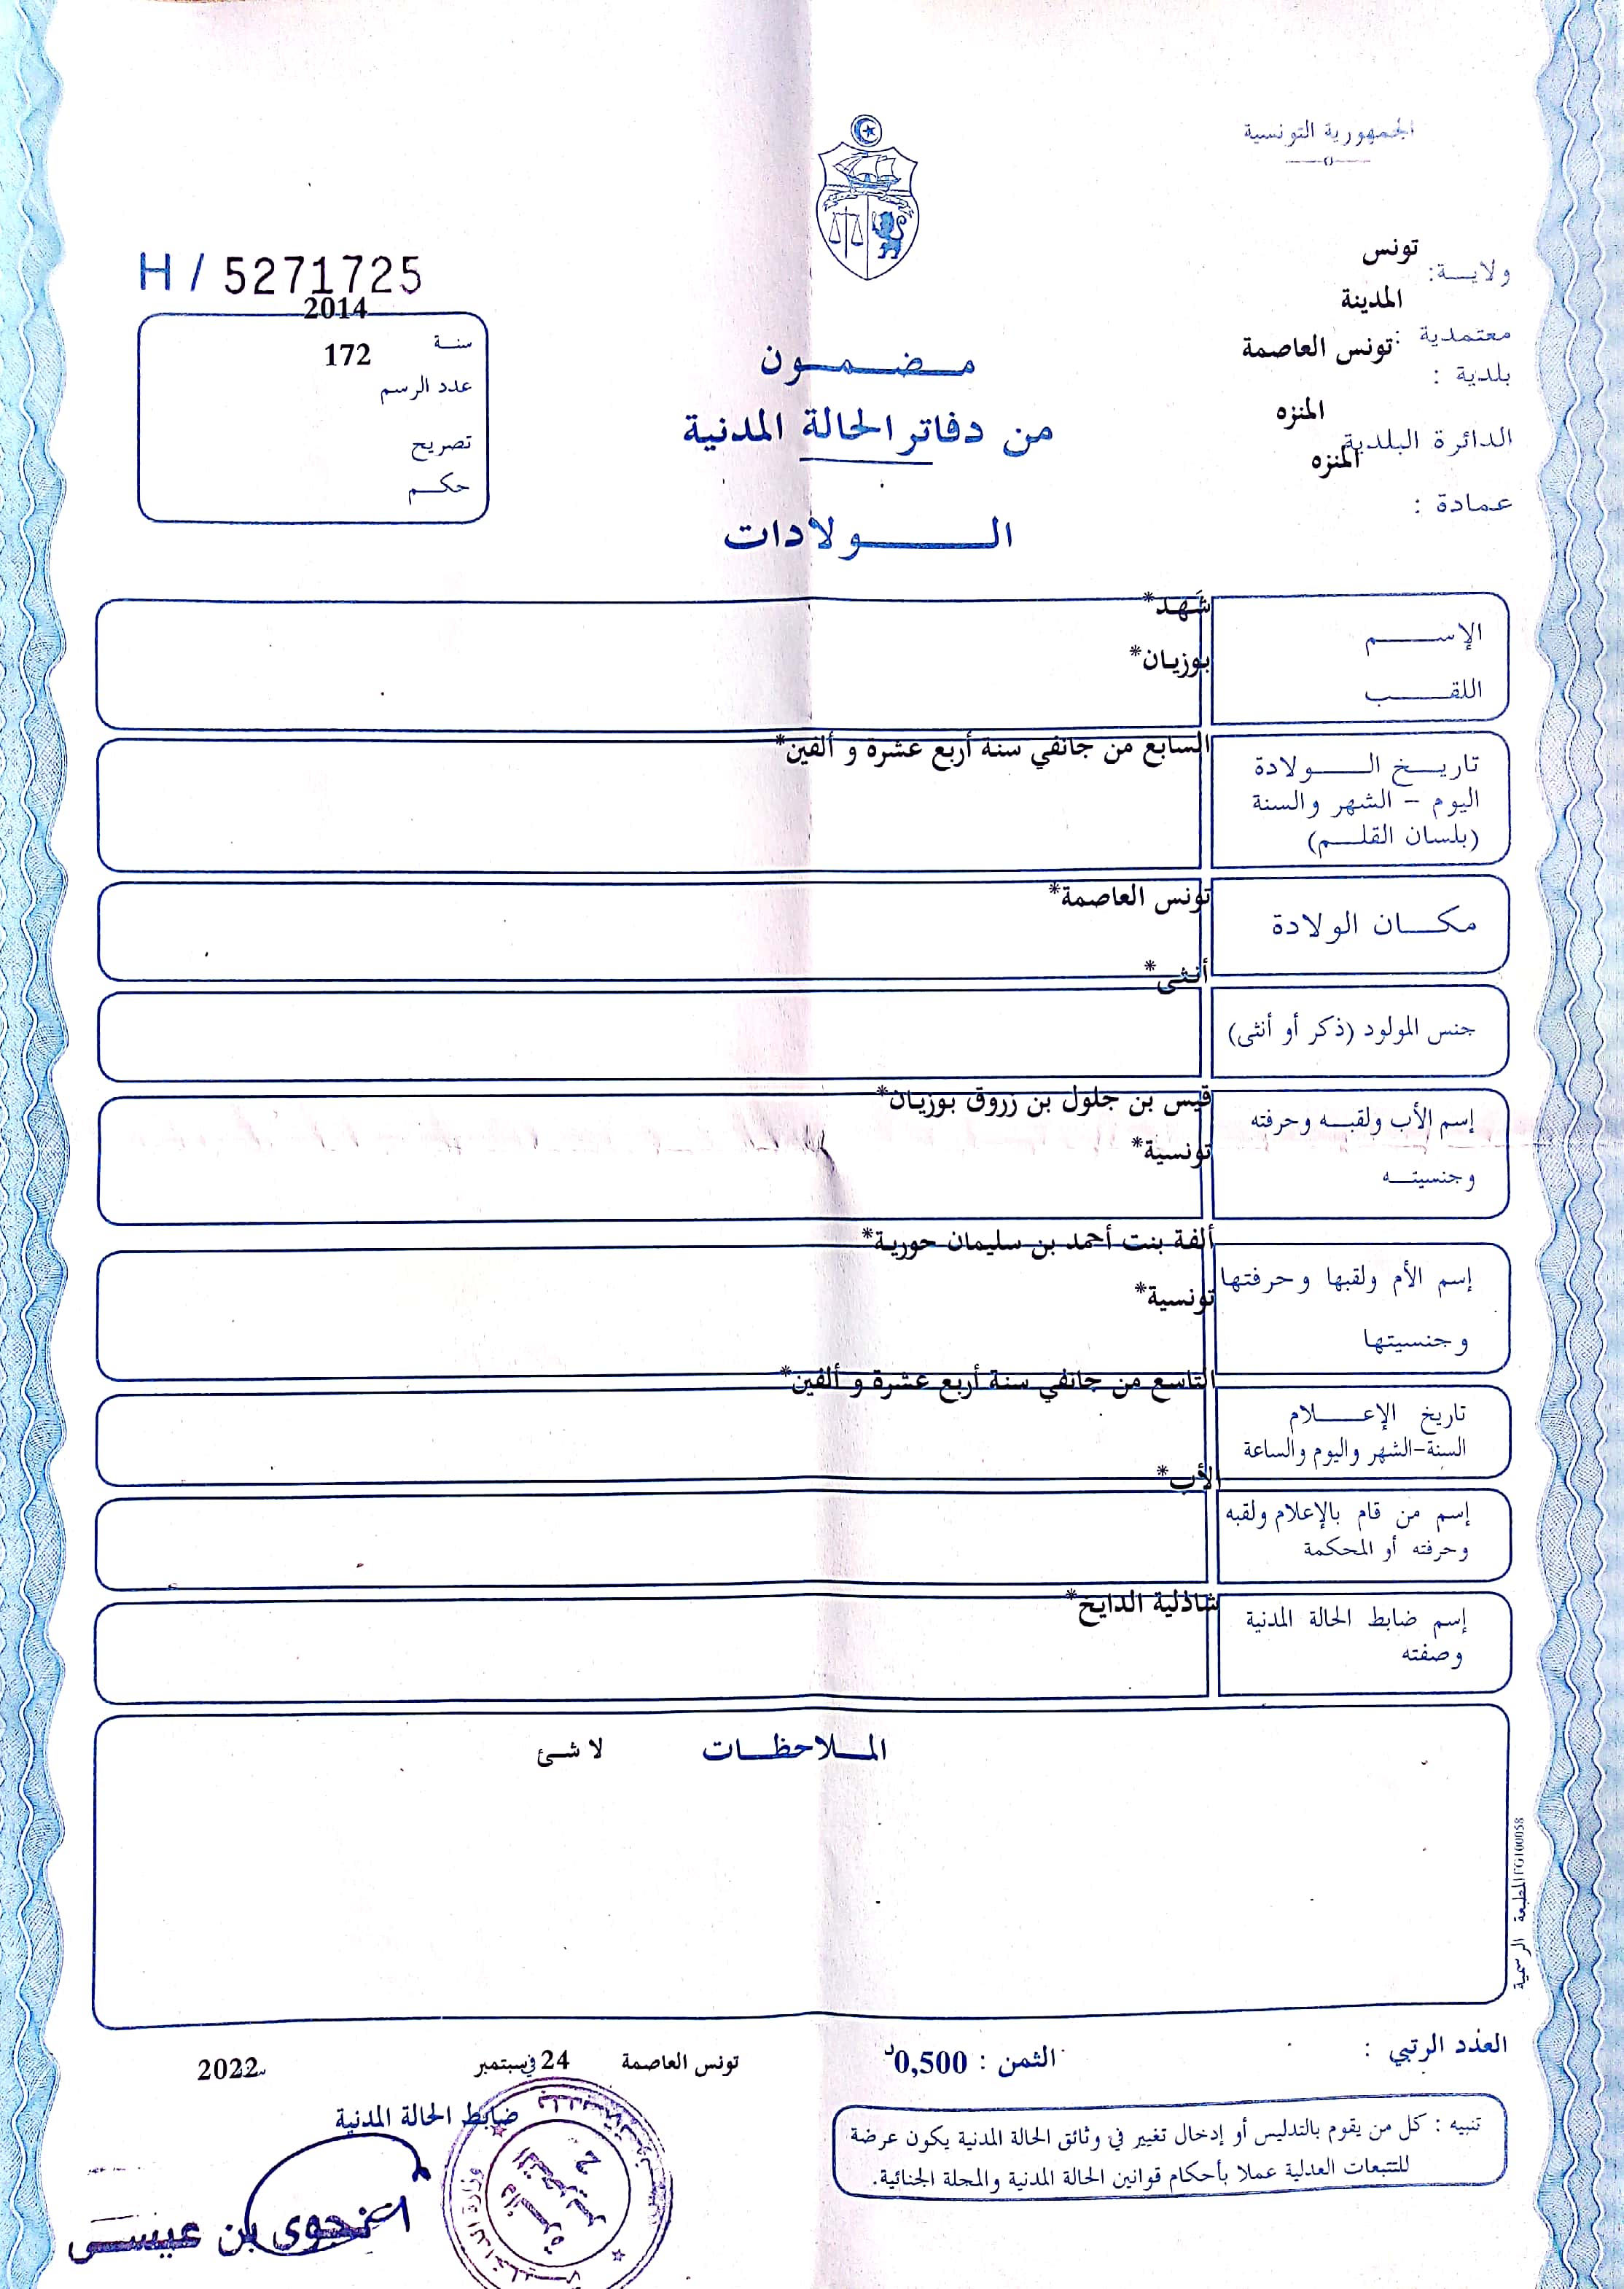 الجمهورية التونسية
ولايـــة: تونس
المدينة
معتمدية :
تونس العاصمة
بلدية :
المنزه
الدائرة البلدية
المنزه
عمادة :
H / 5271725
2014
سنـة
172
عدد الرسم
تصريح
حكـم
مـضـمـون
من دفاتر الحالة المدنية
الـولادات
الإســـم
شَهد*
اللقـــب
بوزيان*
تاريـخ الـــولادة
اليوم - الشهر والسنة
(بلسان القلـم)
السابع من جانفي سنة أربع عشرة و ألفين*
مكـــان الولادة
تونس العاصمة*
جنس المولود (ذكر أو أنثى)
أنثى*
إسم الأب ولقبـه وحرفته
وجنسيتـه
قيس بن جلول بن زروق بوزيان*
تونسية*
إسم الأم ولقبها وحرفتها
وجنسيتها
ألفة بنت أحمد بن سليمان حورية*
تونسية*
تاريخ الإعـــلام
السنة-الشهر واليوم والساعة
التاسع من جانفي سنة أربع عشرة و ألفين*
إسم من قام بالإعلام ولقبه
وحرفته أو المحكمة
الأب*
إسم ضابط الحالة المدنية
وصفته
شاذلية الدايخ*
المـلاحظـات
لا شئ
المطبعة الرسمية FG100058
العدد الرتبي :
الثمن : 0,500د
تونس العاصمة
في 24 سبتمبر
سنة 2022
ضابط الحالة المدنية
تنبيه : كل من يقوم بالتدليس أو إدخال تغيير في وثائق الحالة المدنية يكون عرضة
للتتبعات العدلية عملا بأحكام قوانين الحالة المدنية والمجلة الجنائية.
نجوى بن عيسى
وزارة الداخلية